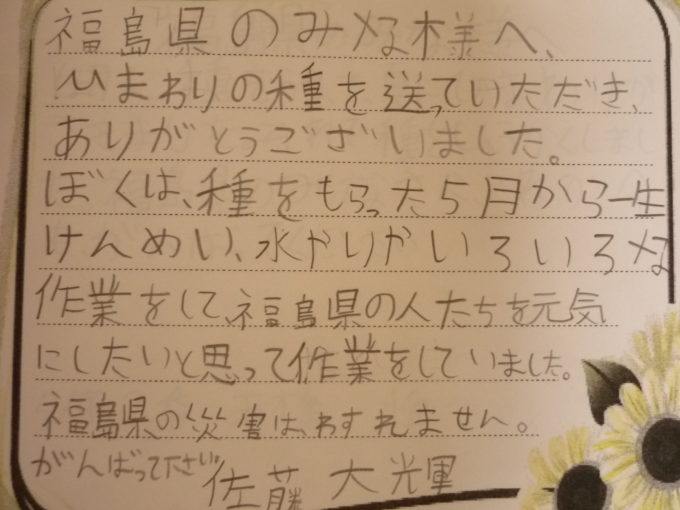 福島県のみな様へ、
ひまわりの種を送っていただき、
ありがとうございました。
ぼくは、種をもらった5月から一生
けんめい、水やりかいろいろな
作業をして、福島県の人たちを元気
にしたいと思って作業をしていました。
福島県の災害は、わすれません。
がんばってださい。佐藤 大輝